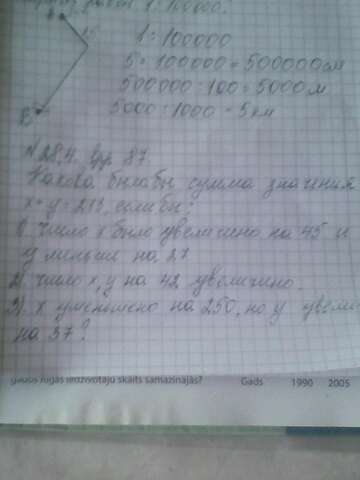 1:100000.
1:100000
5·100000=500000см
500000:100=5000м
5000:1000=5км
№284. стр 87.
Какова была бы сумма значения
x+y=213, если бы:
1) число x было увеличено на 45 и
y меньше на 27
2) число x, y на 42, увеличино.
3) x уменьшено на 250, но y увели
на 37?
gados Rīgas iedzīvotāju skaits samazinājās? Gads 1990 2005